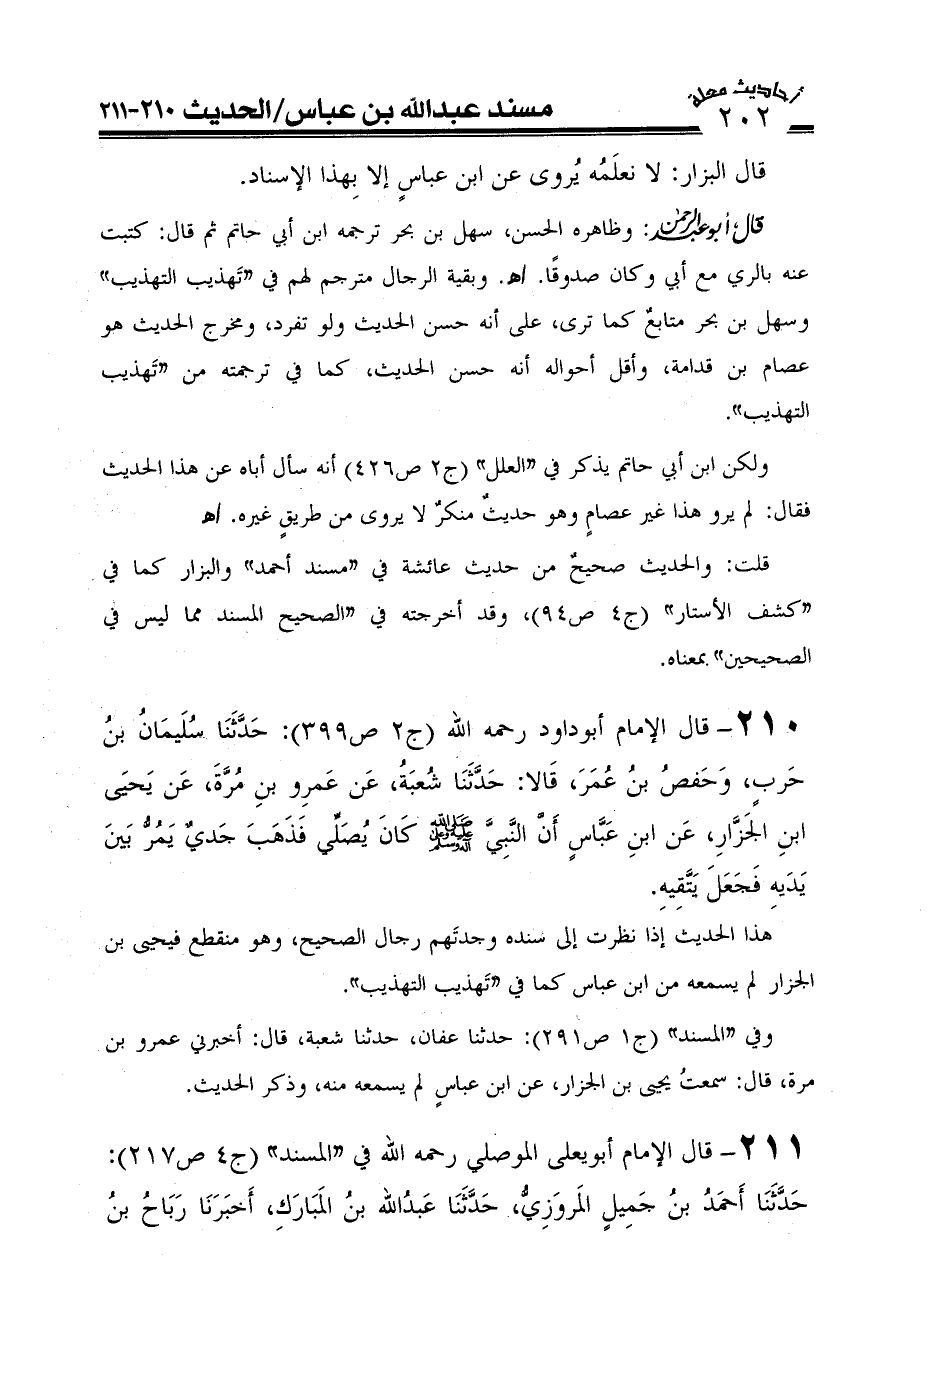 أحاديث معلة
٢٠٢
مسند عبدالله بن عباس/الحديث ٢١٠-٢١١
قال البزار: لا نعلَمُه يُروى عن ابن عباسٍ إلا بِهذا الإسناد.
قال أبو عبدالرحمن: وظاهره الحسن، سهل بن بحر ترجمه ابن أبي حاتم ثم قال: كتبت
عنه بالري مع أبي وكان صدوقًا. اهـ. وبقية الرجال مترجم لهم في «تَهذيب التهذيب»
وسهل بن بحر متابعٌ كما ترى، على أنه حسن الحديث ولو تفرد، ومخرج الحديث هو
عصام بن قدامة، وأقل أحواله أنه حسن الحديث، كما في ترجمته من «تَهذيب
التهذيب».
ولكن ابن أبي حاتم يذكر في «العلل» (ج٢ ص٤٢٦) أنه سأل أباه عن هذا الحديث
فقال: لم يرو هذا غير عصامٍ وهو حديثٌ منكرٌ لا يروى من طريقٍ غيره. اهـ
قلت: والحديث صحيحٌ من حديث عائشة في «مسند أحمد» والبزار كما في
«كشف الأستار» (ج٤ ص٩٤)، وقد أخرجته في «الصحيح المسند مما ليس في
الصحيحين» بمعناه.
٢١٠- قال الإمام أبوداود رحمه الله (ج٢ ص٣٩٩): حَدَّثَنَا سُلَيمَانُ بنُ
حَربٍ، وَحَفصُ بنُ عُمَرَ، قَالا: حَدَّثَنَا شُعبَةُ، عَن عَمرِو بنِ مُرَّةَ، عَن يَحيَى
ابنِ الجَزَّارِ، عَن ابنِ عَبَّاسٍ أَنَّ النَّبِيَّ ﷺ كَانَ يُصَلِّي فَذَهَبَ جَديٌ يَمُرُّ بَينَ
يَدَيهِ فَجَعَلَ يَتَّقِيهِ.
هذا الحديث إذا نظرت إلى سنده وجدتَهم رجال الصحيح، وهو منقطع فيحيى بن
الجزار لم يسمعه من ابن عباس كما في «تَهذيب التهذيب».
وفي «المسند» (ج١ ص٢٩١): حدثنا عفان، حدثنا شعبة، قال: أخبرني عمرو بن
مرة، قال: سمعتُ يحيى بن الجزار، عن ابن عباسٍ لم يسمعه منه، وذكر الحديث.
٢١١- قال الإمام أبويعلى الموصلي رحمه الله في «المسند» (ج٤ ص٢١٧):
حَدَّثَنَا أَحمَدُ بنُ جَمِيلٍ المَروَزِيُّ، حَدَّثَنَا عَبدُالله بنُ المُبَارَكِ، أَخبَرَنَا رَبَاحُ بنُ